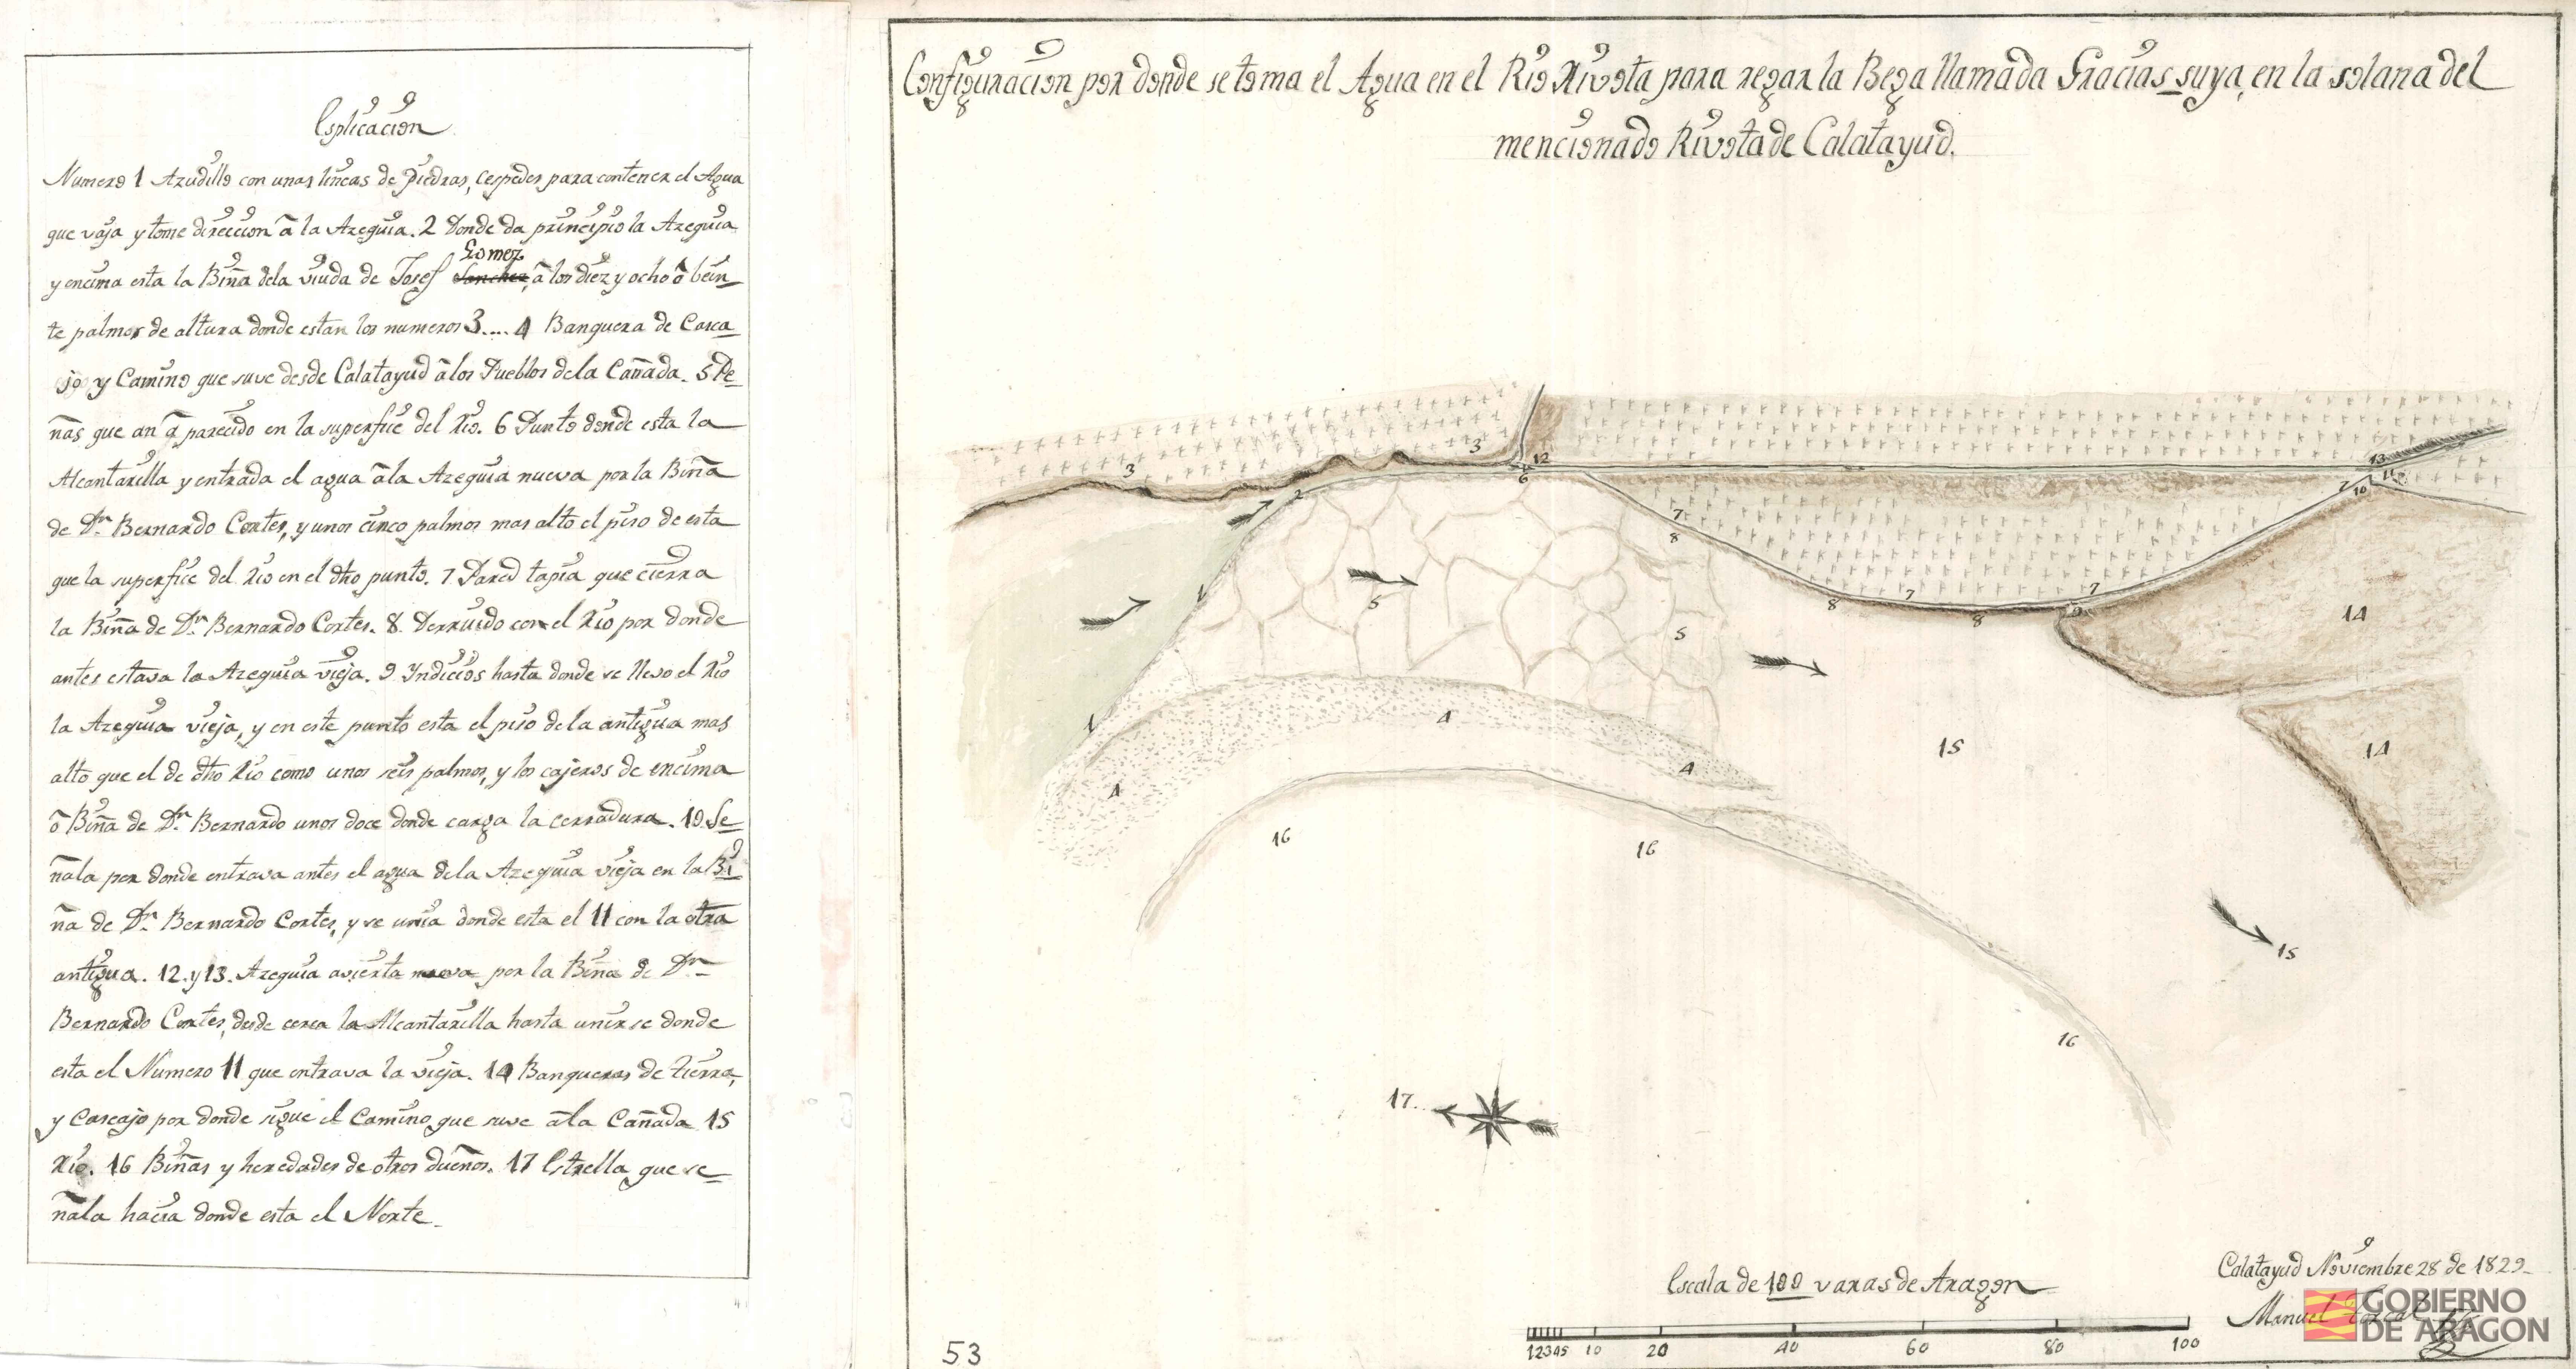 Esplicacion
Numero 1 Azudillo con unas lineas de piedras, cespedes para contener el Agua
que vaja y tome direccion â la Azequia. 2 Donde da principio la Azequia
Gomez
y encima esta la Biña dela viuda de Josef Sanchez, â los diez y ocho ô bein
te palmos de altura donde estan los numeros 3.... 4 Banquera de Casca
jo y Camino que suve desde Calatayud â los Pueblos dela Cañada. 5 Pe
ñas que an aparecido en la superficie del Rio. 6 Punto donde esta la
Alcantarilla y entrada el agua âla Azequia nueva por la Biña
de Dn. Bernardo Cortes, y unos cinco palmos mas alto el piso de esta
que la superficie del Rio en el dho punto. 7 Pared tapia que cierra
la Biña de Dn. Bernardo Cortes. 8. Derruido con el Rio por donde
antes estava la Azequia vieja. 9 Yndicios hasta donde se llevo el Rio
la Azequia vieja, y en este punto esta el piso de la antigua mas
alto que el de dho Rio como unos seis palmos, y los cajeros de encima
ô Biña de Dn. Bernardo unos doce donde carga la cerradura. 10 Se
ñala por donde entrava antes el agua dela Azequia vieja en la Bi
ña de Dn. Bernardo Cortes, y se unia donde esta el 11 con la otra
antigua. 12 y 13. Azequia avierta nueva por la Biña de Dn
Bernardo Cortes, desde cerca la Alcantarilla hasta unirse donde
esta el Numero 11 que entrava la vieja. 14 Banqueras de tierra,
y Cascajo por donde sigue el Camino que suve âla Cañada 15
Rio. 16 Biñas y heredades de otros dueños. 17 Estrella que se
ñala hacia donde esta el Norte.
Configuracion por donde se toma el Agua en el Rio Rivota para regar la Bega llamada Gracias suya, en la solana del
mencionado Rivota de Calatayud.
3
3
12
6
2
13
11
7
10
7
8
1
5
5
7
7
8
8
9
14
14
1
4
4
4
15
16
16
15
16
17.
Escala de 100 varas de Aragon
12345 10 20 40 60 80 100
Calatayud Noviembre 28 de 1829.
Manuel
GOBIERNO
DE ARAGON
53